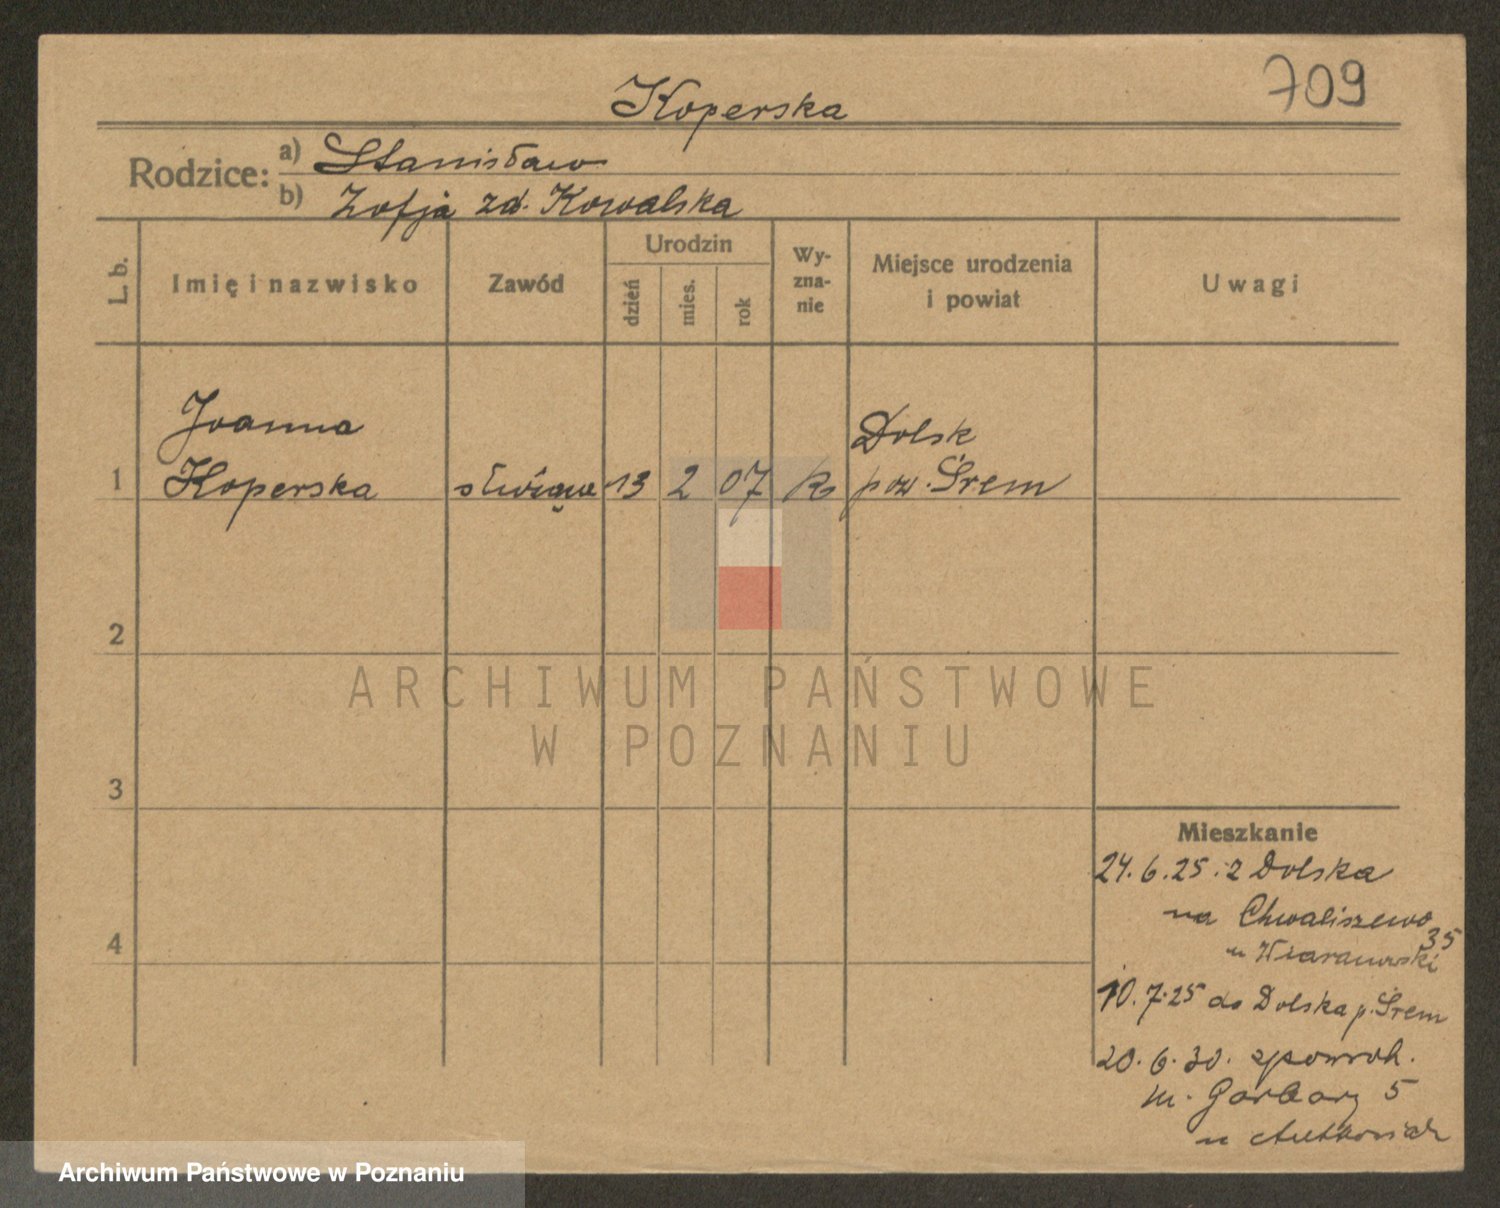 709
Koperska
Rodzice:
a) Stanisław
b) Zofja zd. Kowalska
L. b.
Imię i nazwisko
Zawód
Urodzin
dzień
mies.
rok
Wy-
zna-
nie
Miejsce urodzenia
i powiat
Uwagi
Joanna
Dolsk
1 Koperska służąca 13 2 07 pow. Śrem
2
3
4
Mieszkanie
24.6.25. z Dolska
na Chwaliszewo
35
u
10.7.25 do Dolska p. Śrem
20.6.30. zpowrok.
m. Garbary 5
u
ARCHIWUM PAŃSTWOWE
W POZNANIU
Archiwum Państwowe w Poznaniu